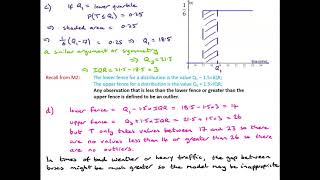 c) if Q₁ = lower quartile
P(T ≤ Q₁) = 0.25
⇒ shaded area = 0.25
⇒ 1/6 (Q₁ - 17) = 0.25 ⇒ Q₁ = 18.5
a similar argument or symmetry
⇒ Q₃ = 21.5
⇒ IQR = 21.5 - 18.5 = 3
1/6
Recall from M2:
The lower fence for a distribution is the value Q₁ – 1.5×IQR;
The upper fence for a distribution is the value Q₃ + 1.5×IQR.
Any observation that is less than the lower fence or greater than the
upper fence is defined to be an outlier.
d) lower fence = Q₁ - 1.5×IQR = 18.5 - 1.5×3 = 14
upper fence = Q₃ + 1.5×IQR = 21.5 + 1.5×3 = 26
but T only takes values between 17 and 23 so there
are no values less than 14 or greater than 26 so there
are no outliers.
In times of bad weather or heavy traffic, the gap between
buses might be much greater so the model may be inappropriate